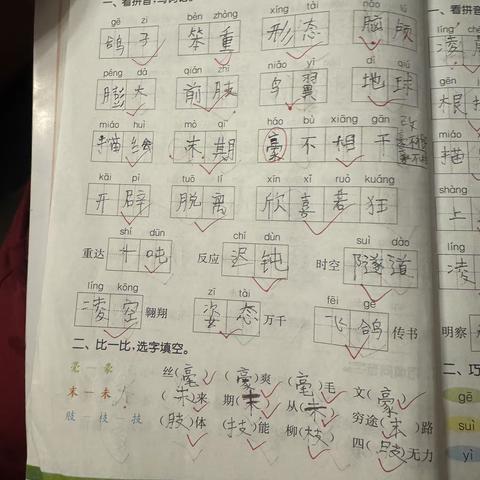 一、看拼音,写词语。
gē zi bèn zhòng xíng tài nǎo lú
鸽子 笨重 形态 脑颅
péng dà qián zhī niǎo yì dì qiú
膨大 前肢 鸟翼 地球
miáo huì mò qī háo bù xiāng gān
描绘 末期 豪不相干
kāi pì tuō lí xīn xǐ ruò kuáng
开辟 脱离 欣喜若狂
shí dūn chí dùn suì dào
重达十吨 反应迟钝 时空隧道
líng kōng zī tài fēi gē
凌空翱翔 姿态万千 飞鸽传书
二、比一比,选字填空。
毫—豪 丝(毫) (豪)爽 (毫)毛 文(豪)
末—未 (未)来 期(末) 从(未) 穷途(末)路
肢—枝—技 (肢)体 (技)能 柳(枝) 四(肢)无力